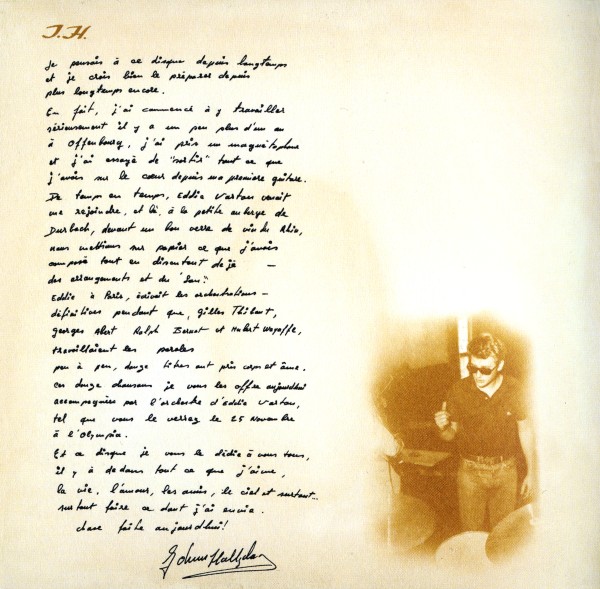 J.H.
Je pensais à ce disque depuis longtemps
et je crois bien le préparer depuis
plus longtemps encore.
En fait, j'ai commencé à y travailler
sérieusement il y a un peu plus d'un an
à Offenbourg, j'ai pris un magnétophone
et j'ai essayé de "sortir" tout ce que
j'avais sur le cœur depuis ma première guitare.
De temps en temps, Eddie Vartan venait
me rejoindre, et là, à la petite auberge de
Durbach, devant un bon verre de vin du Rhin,
nous mettions sur papier ce que j'avais
composé tout en discutant déjà —
des arrangements et du "Son".
Eddie à Paris, écrivait les orchestrations —
définitives pendant que, Gilles Thibaut,
Georges Abert Ralph Bernet et Hubert Wayaffe,
travaillaient les paroles
peu à peu, douze titres ont pris corps et âme.
Ces douze chansons je vous les offre aujourdhui
accompagnées par l'orchestre d'Eddie Vartan,
tel que vous le verrez le 25 Novembre
à l'Olympia.
Et ce disque je vous le dédie à vous tous,
il y à dedans tout ce que j'aime,
la vie, l'amour, les amis, le ciel et surtout...
surtout faire ce dont j'ai envie.
chose faite aujourd'hui!
Johnny Hallyday